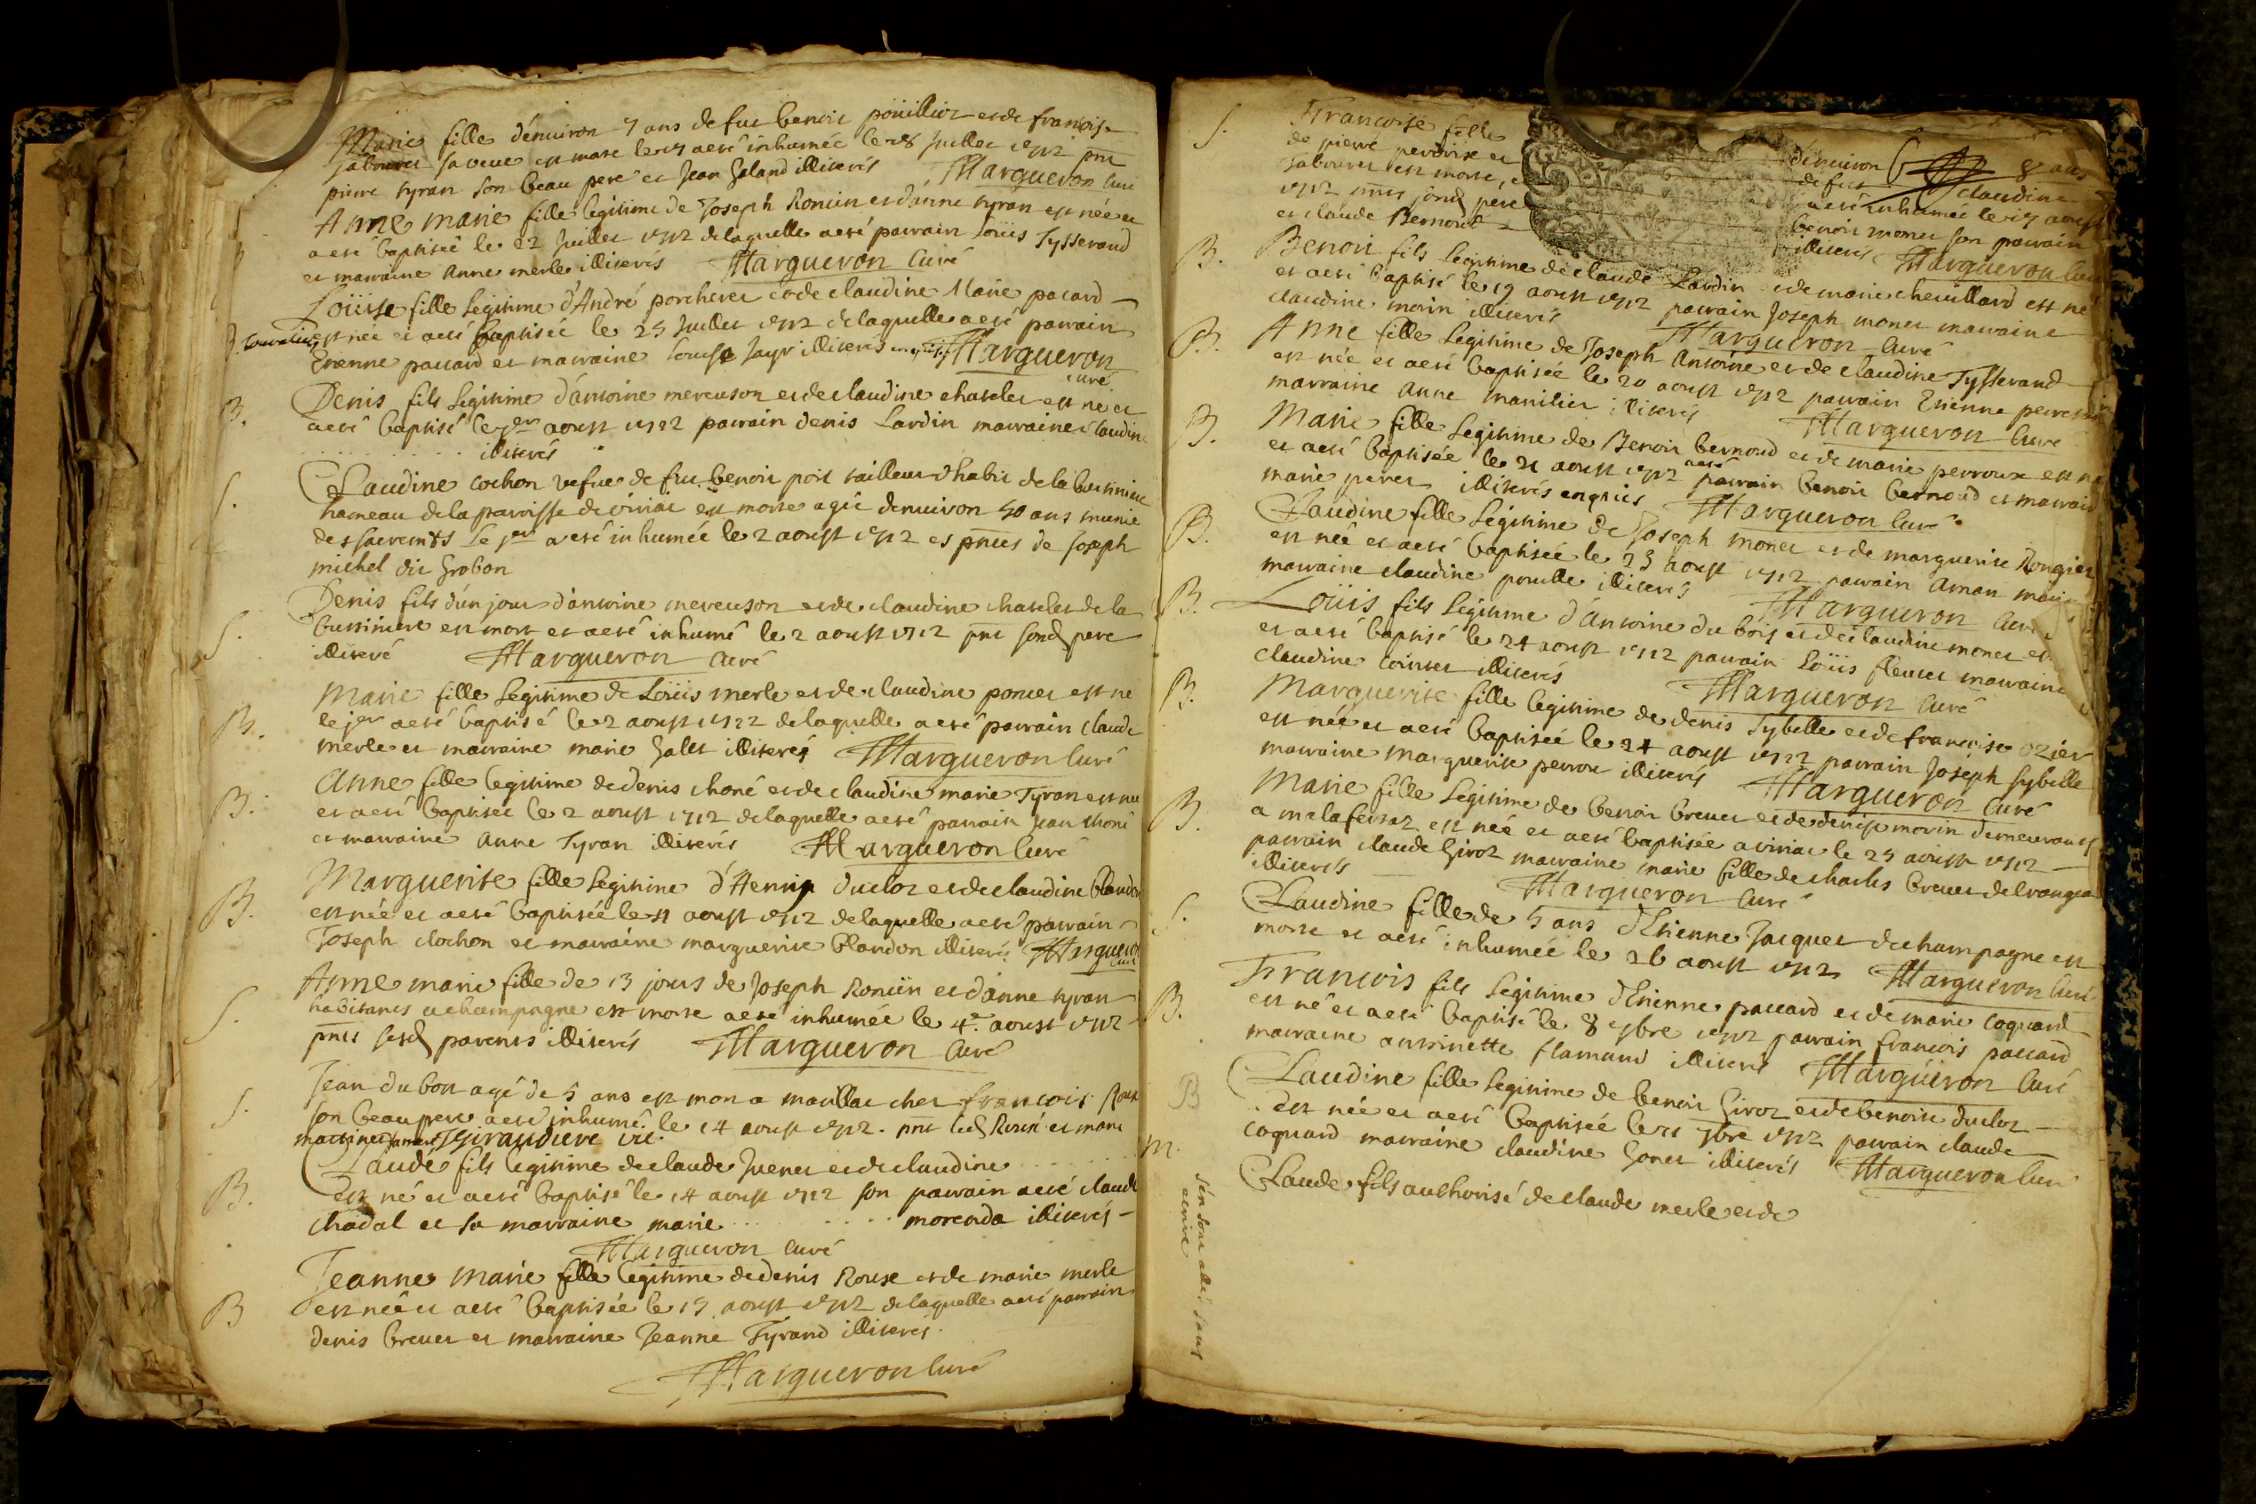 Marie fille d'enuiron 7 ans de feu benoit poüillioz et de francoise
jabouret sa veuue est morte le 17 a eté inhumée le 18 Juillet 1712 pnt
pierre tyran son beau pere et Jean Galand illiterés Margueron Curé
Anne Marie fille legitime de Joseph Ronsin et d'anne tyran est née et
a eté baptisée le 22 Juillet 1712 de laquelle a eté parrain Loüis Tysserand
et marraine Anne merle illiterés Margueron Curé
Loüise fille legitime d'André porcheret et de claudine Marie pacard
est née et a eté baptisée le 25 Juillet 1712 de laquelle a eté parrain
Etienne paccard et marraine Louise Jayr illiterés enquis Margueron
curé
Denis fils legitime d'antoine mercuson et de claudine chatelet est né et
B. a eté baptisé le jer aoust 1712 parrain denis Lardin marraine claudine
. . . . . . . . . . illiterés
S. Claudine cochon vefue de feu benoit poit tailleur d'habit de la bussiniere
hameau de la parroisse de viriat est morte agée denuiron 50 ans munie
des sacremts le jer a eté inhumée le 2 aoust 1712 es pnces de joseph
michel dit Grobon
S. Denis fils d'un jour d'antoine mercuson et de claudine chatelet de la
bussiniere est mort et a eté inhumé le 2 aoust 1712 pnt sond pere
illiteré Margueron Curé
Marie fille legitime de Loüis merle et de claudine poncet est né
B. le jer a eté baptisé le 2 aoust 1712 de laquelle a eté parrain claude
merle et marraine marie Galet illiterés Margueron Curé
Anne fille legitime de denis choné et de claudine marie Tyran est née
B. et a eté baptisée le 2 aoust 1712 de laquelle a eté parrain jean choné
et marraine Anne Tyran illiterés Margueron Curé
Marguerite fille legitime d'Henry ducloz et de claudine blandon
B. est née et a eté baptisée le 11 aoust 1712 de laquelle a eté parrain
Joseph clochon et marraine marguerite blandon illiterés Margueron
Curé
Anne marie fille de 13 jours de Joseph Ronsin et d'anne tyran
S. habitants a champagne est morte a eté inhumée le 4e aoust 1712
pnts sesd parents illiterés Margueron Curé
Jean du bon agé de 5 ans est mort a maillac chez francois Roux
S. son beau pere a eté inhumé le 14 aoust 1712. pnt led Roux et marc
Giraudiere vic.
Claude fils legitime de claude Juenet et de claudine . . . . . . .
B. est né et a eté baptisé le 14 aoust 1712 son parrain a eté claude
chadal et sa marraine marie . . . . . . . morenda illiterés
Margueron Curé
Jeanne Marie fille legitime de denis Rouse et de marie merle
B est née et a eté baptisée le 15 aoust 1712 de laquelle a eté parrain
denis breuet et marraine Jeanne Tyrand illiterés.
Margueron Curé
S. Francoise fille d'enuiron 8 ans
de pierre perdrix et de feue claudine
jabouret est morte, et a eté inhumée le 17 aoust
1712 pnts sond pere benoit monet son parrain
et claude Bernoud illiterés Margueron Curé
B. Benoit fils legitime de claude Lardin et de marie cheuillard est né
et a eté baptisé le 19 aoust 1712 parrain Joseph monet marraine
claudine morin illiterés Margueron Curé
B. Anne fille legitime de Joseph Antoine et de claudine Tysserand
est née et a eté baptisée le 20 aoust 1712 parrain Etienne
marraine Anne manilier illiterés Margueron Curé
B. Marie fille legitime de Benoit bernoud et de marie perroux est née
et a eté baptisée le 21 aoust 1712 a eté parrain benoit bernoud et marraine
marie peret illiterés enquis Margueron Curé
B. Claudine fille legitime de Joseph monet et de marguerite Rongier
est née et a eté baptisée le 23 aoust 1712 parrain
marraine claudine pouille illiterés Margueron Curé
B. Loüis fils legitime d'Antoine du bois et de claudine monet est
et a eté baptisé le 24 aoust 1712 parrain Loüis fleuret marraine
claudine cointet illiterés Margueron Curé
B. Marguerite fille legitime de denis Sybille et de francoise ozier
est née et a eté baptisée le 24 aoust 1712 parrain Joseph sybille
marraine marguerite perrou illiterés Margueron Curé
B. Marie fille legitime de benoit breuet et de denise morin demeurants
a malafertaz est née et a eté baptisée a viriac le 25 aoust 1712
parrain claude Giroz marraine marie fille de charles breuet
illiterés Margueron Curé
S. Claudine fille de 5 ans d'Etienne Jacquet de champagne est
morte et a eté inhumée le 26 aoust 1712 Margueron Curé
B. Francois fils legitime d'Etienne paccard et de marie coquard
est né et a eté baptisé le 8 7bre 1712 parrain francois paccard
marraine antoinette flamand illiterés Margueron Curé
B Claudine fille legitime de benoit Giroz et de benoite ducloz
est née et a eté baptisée le 11 7bre 1712 parrain claude
coquard marraine claudine Gonet illiterés Margueron Curé
M. Claude fils authorisé de claude merle et de
s'en sont allé sans
ecrire